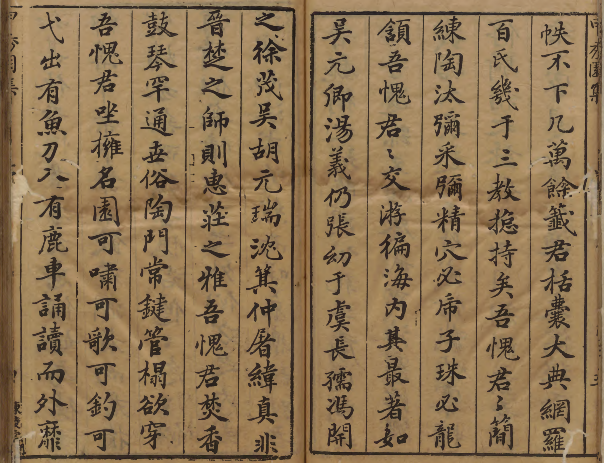 帙不下凡萬餘籤君栝囊大典網羅
百氏幾于三教揔持矣吾愧君〻簡
練陶汰彌采彌精穴必帝子珠必龍
頷吾愧君〻交游徧海内其最著如
吳元卿湯義仍張幼于虞長孺馮開
之徐茂吳胡元瑞沈箕仲屠緯真非
晉楚之師則惠莊之雅吾愧君焚香
鼓琴罕通世俗陶門常鍵管榻欲穿
吾愧君坐擁名園可嘯可歌可釣可
弋出有魚刀入有鹿車誦讀而外靡